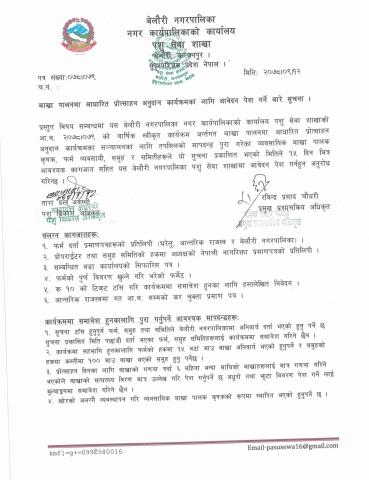 बेलौरी नगरपालिका
नगर कार्यपालिकाको कार्यालय
पशु सेवा शाखा
बेलौरी, कञ्चनपुर
सुदूरपश्चिम प्रदेश नेपाल ।
पत्र संख्या:०७८।०७९
मिति: २०७८।०९।१२
च.नं. :
बाख्रा पालनमा आधारित प्रोत्साहन अनुदान कार्यक्रमका लागि आवेदन पेश गर्ने बारे सूचना ।
प्रस्तुत विषय सम्बन्धमा यस बेलौरी नगरपालिका नगर कार्यपालिकाको कार्यालय पशु सेवा शाखाको
आ.व. २०७८।०७९ को वार्षिक स्वीकृत कार्यक्रम अर्न्तगत बाख्रा पालनमा आधारित प्रोत्साहन
अनुदान कार्यक्रमका सञ्चालनका लागि तपसिलको मापदण्ड पुरा गरेका व्यवसायिक बाख्रा पालक
कृषक, फर्म व्यवसायी, समुह र समितिहरुले यो सुचना प्रकाशित भएको मितिले १५ दिन भित्र
आवश्यक कागजात सहित यस बेलौरी नगरपालिका पशु सेवा शाखामा आवेदन पेश गर्नुहुन अनुरोध
गरिन्छ ।
तारा दत्त अवस्थी
पशु विकास अधिकृत
रविन्द्र प्रसाद चौधरी
प्रमुख प्रशासकिय अधिकृत
संलग्न कागजातहरू:
१. फर्म दर्ता प्रमाणपत्रहरूको प्रतिलिपी (घरेलु, आन्तरिक राजस्व र बेलौरी नगरपालिका)।
२. प्रोपराईटर तथा समुह समितिको हकमा अध्यक्षको नेपाली नागरिक्ता प्रमाणपत्रको प्रतिलिपी ।
३. सम्बन्धित वडा कार्यालयको सिफारिस पत्र ।
४. फर्मको पुर्ण विवरण खुल्ने गरि भरेको फर्मेट ।
५. रू १० को टिकट टाँस गरि कार्यक्रममा समावेश हुनका लागि हस्तलेखित निवेदन ।
६. आन्तरिक राजस्वमा गत आ.व. सम्मको कर चुक्ता प्रमाण पत्र ।
कार्यक्रममा समावेश हुनकालागि पुरा गर्नुपर्ने आवश्यक मापदन्डहरू:
१. सुचना टाँस हुनुपुर्व फर्म, समुह तथा समितिले बेलौरी नगरपालिकामा अनिवार्य दर्ता भएको हुनु पर्ने छ
सुचना प्रकाशित मिति पछाडी दर्ता भएका फर्म, समुह तथा समितिहरुलाई कार्यक्रममा समावेश गरिने छैन ।
२. कार्यक्रम सहभागि हुनकालागि फर्मको हकमा १५ वटा माउ बाख्रा अनिवार्य भएको हुनुपर्ने र समुहको
हकमा कम्तीमा १०० माउ बाख्रा भएको समुह हुनु पर्नेछ ।
३. प्रोत्साहन दिनका लागि बाख्राको गणना गर्दा ६ महिना भन्दा माथिको बाख्राहरुलाई मात्र गणना गरिने
भएकोले बाख्राको सत्यतथ्य विरण मात्र उल्लेख गरि पेश गर्नुपर्ने छ अधुरो तथा झुटा विवरण पेश गर्ने लाई
मुल्याङ्कनमा समावेश गरिने छैन ।
४. खोरको अलग्गै व्यवस्थापन गरि व्यवसायिक बाख्रा पालक कृषकको रूपमा स्थापित भएको हुनुपर्ने छ ।
Email-pasusewa16@gmail.com